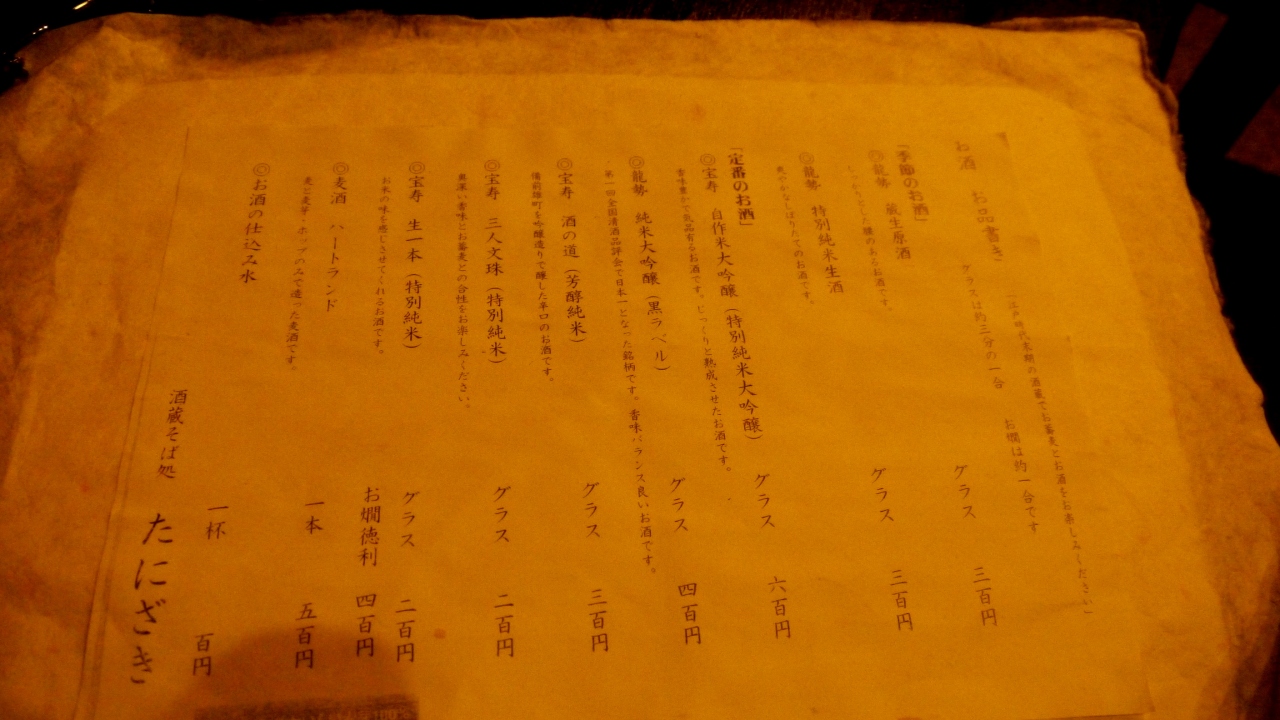 お酒 お品書き
「江戸時代末期の酒蔵でお蕎麦とお酒をお楽しみください」
グラスは約三分の一合 お燗は約一合です
「季節のお酒」
◎龍勢 蔵生原酒 グラス 三百円
しっかりとした腰のあるお酒です。
◎龍勢 特別純米生酒 グラス 三百円
爽やかなしぼりたてのお酒です。
「定番のお酒」
◎宝寿 自作米大吟醸（特別純米大吟醸） グラス 六百円
香味豊かで気品有るお酒です。じっくりと熟成させたお酒です。
◎龍勢 純米大吟醸（黒ラベル） グラス 四百円
第一回全国清酒品評会で日本一となった銘柄です。香味バランス良いお酒です。
◎宝寿 酒の道（芳醇純米） グラス 三百円
備前雄町を吟醸造りで醸した辛口のお酒です。
◎宝寿 三人文珠（特別純米） グラス 二百円
奥深い香味とお蕎麦との合性をお楽しみください。
◎宝寿 生一本（特別純米） グラス 二百円
お燗徳利 四百円
お米の味を感じさせてくれるお酒です。
◎麦酒 ハートランド 一本 五百円
麦と麦芽・ホップのみで造った麦酒です。
◎お酒の仕込み水 一杯 百円
酒蔵そば処 たにざき